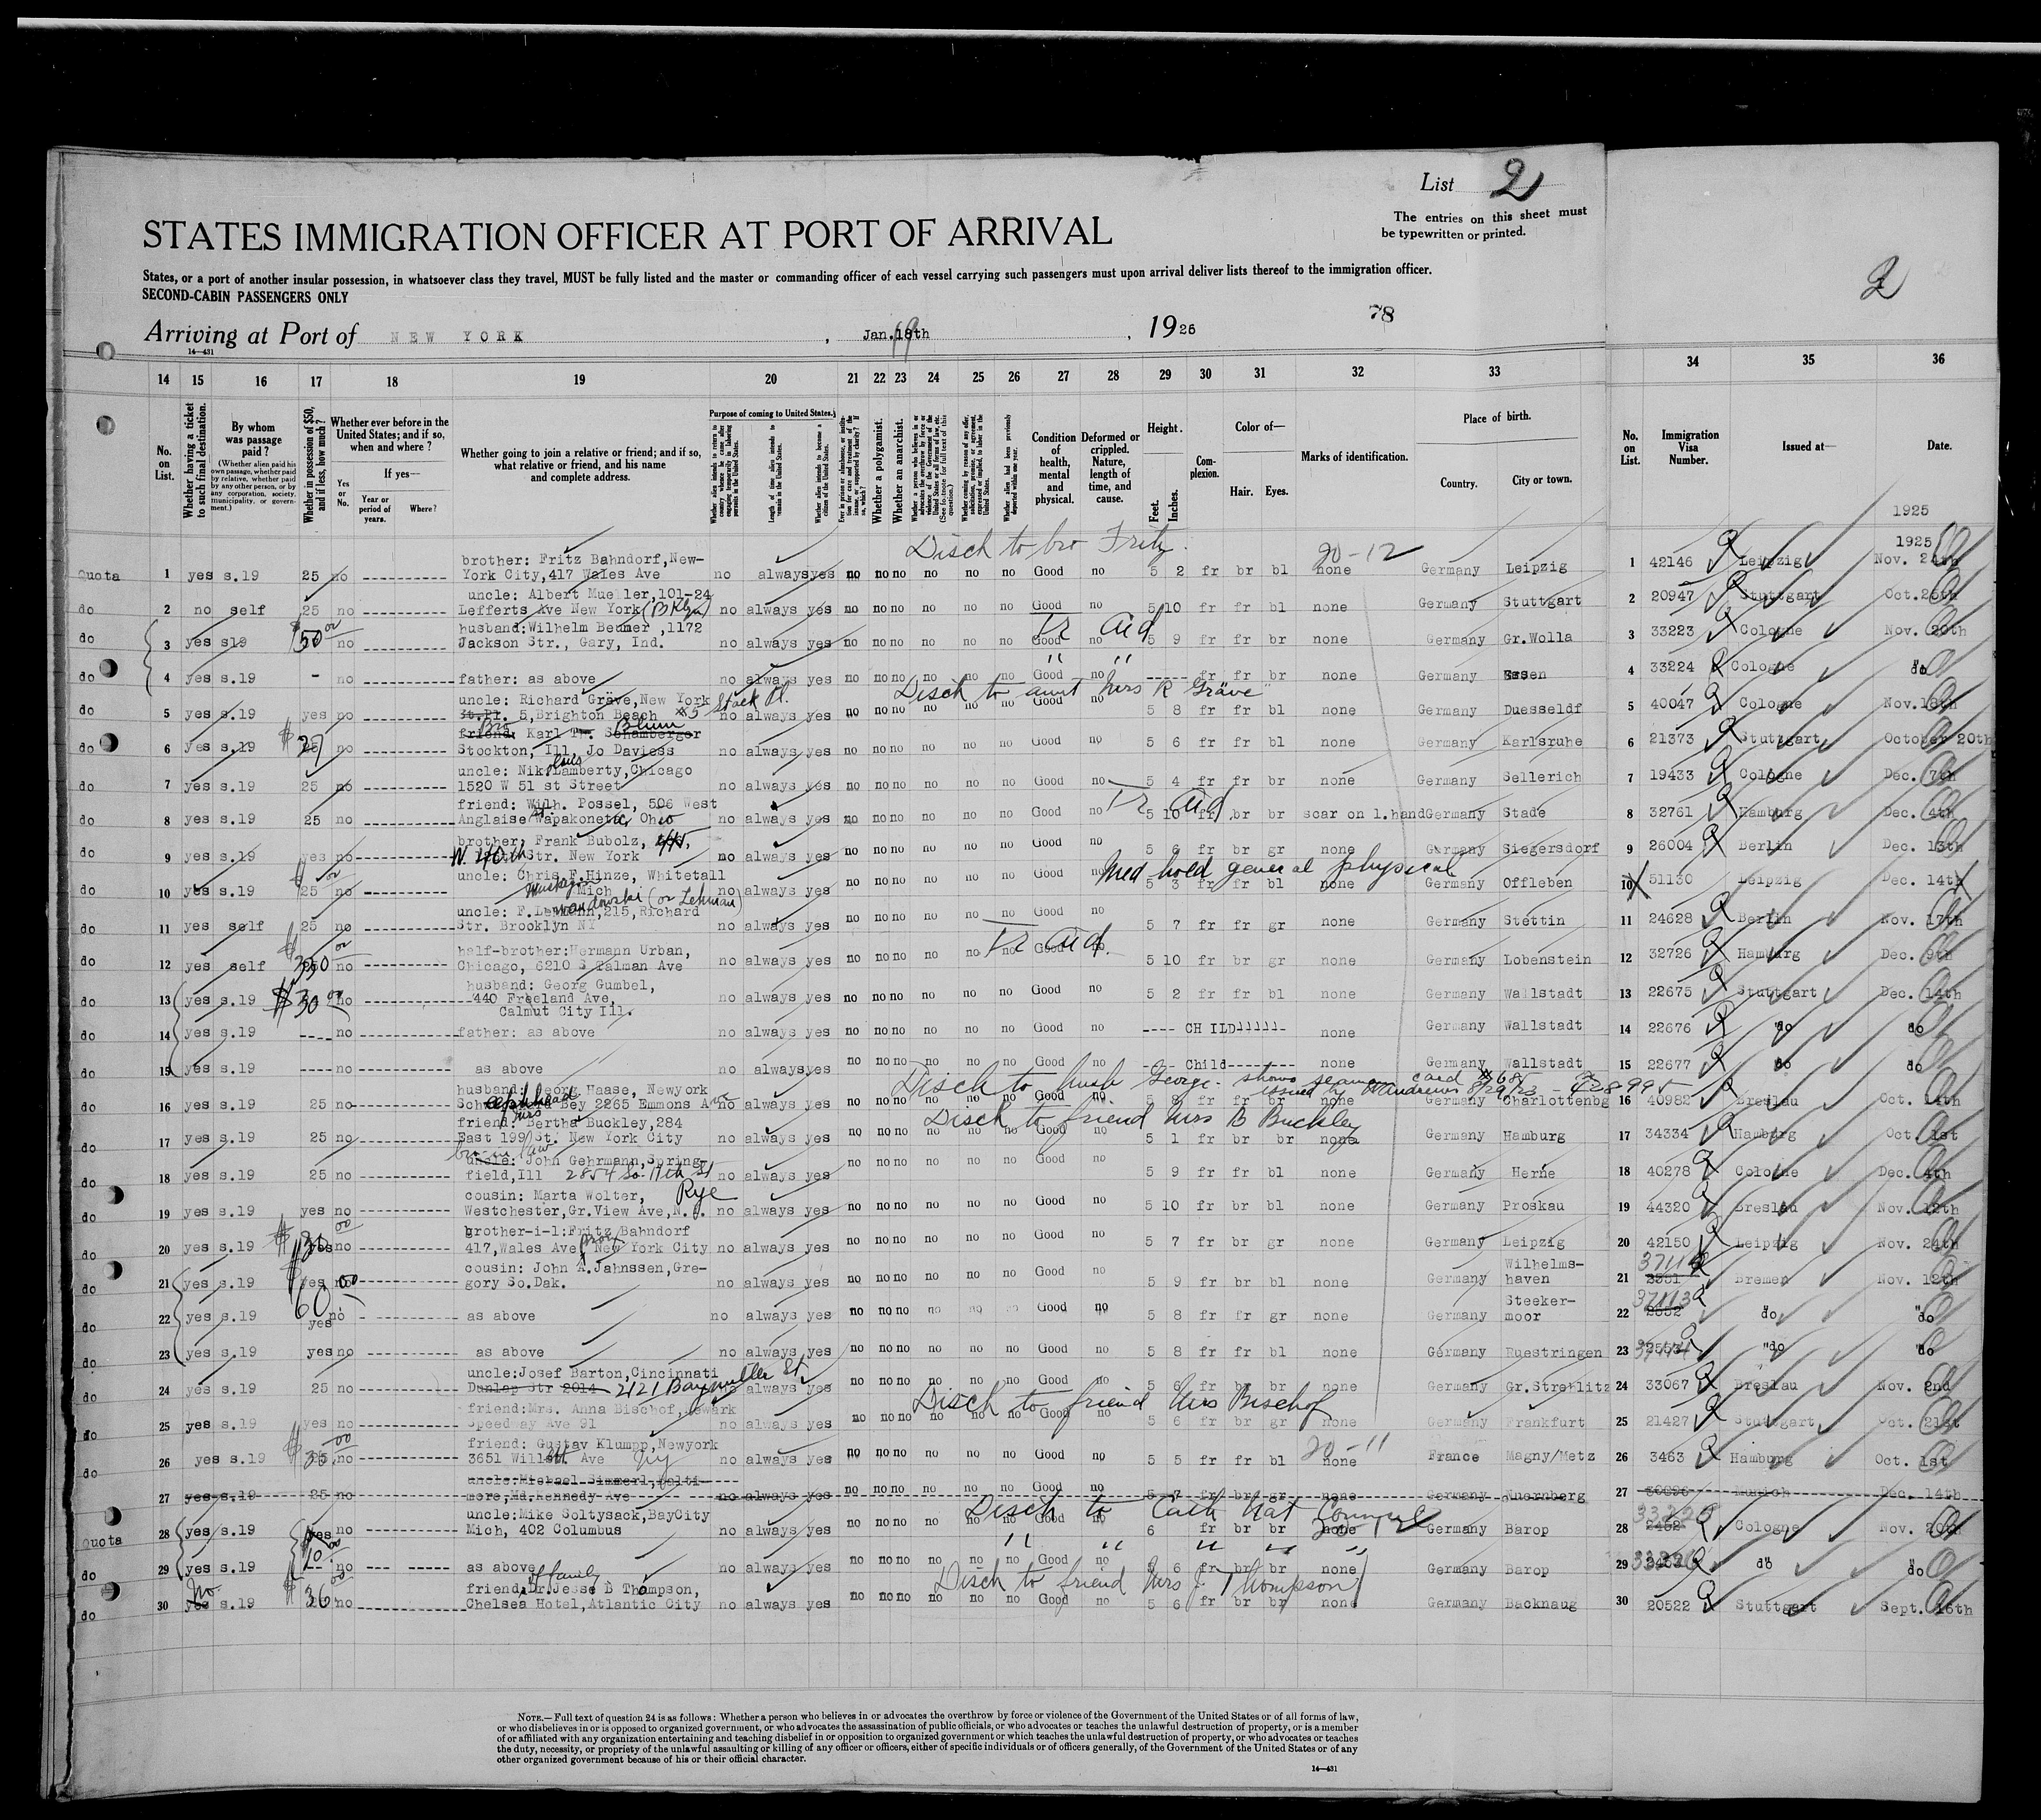 List 2
The entries on this sheet must
be typewritten or printed.
STATES IMMIGRATION OFFICER AT PORT OF ARRIVAL
States, or a port of another insular possession, in whatsoever class they travel, MUST be fully listed and the master or commanding officer of each vessel carrying such passengers must upon arrival deliver lists thereof to the immigration officer.
SECOND-CABIN PASSENGERS ONLY
2
78
Arriving at Port of NEW YORK, Jan. 19th, 1926
14—431
14 15 16 17 18 19 20 21 22 23 24 25 26 27 28 29 30 31 32 33 34 35 36
No. on List.
Whether having a ticket to such final destination.
By whom was passage paid?
(Whether alien paid his own passage, whether paid by relative, whether paid by any other person, or by any corporation, society, municipality, or government.)
Whether in possession of $50, and if less, how much?
Whether ever before in the United States; and if so, when and where?
Yes or No.
If yes—
Year or period of years.
Where?
Whether going to join a relative or friend; and if so, what relative or friend, and his name and complete address.
Purpose of coming to United States.
Length of time alien intends to remain in the United States.
Whether alien intends to become a citizen of the United States.
Whether a polygamist.
Whether an anarchist.
Condition of health, mental and physical.
Deformed or crippled. Nature, length of time, and cause.
Height.
Feet. Inches.
Complexion.
Color of—
Hair. Eyes.
Marks of identification.
Place of birth.
Country. City or town.
No. on List.
Immigration Visa Number.
Issued at—
Date.
1925
Disch to bro Fritz 20-12 1925
Quota 1 yes s.19 25 no brother: Fritz Bahndorf,New-York City,417 Wales Ave no always yes no no no no no no Good no 5 2 fr br bl none Germany Leipzig 1 42146 Leipzig Nov. 24th
do 2 no self 25 no uncle: Albert Mueller,101-24 Lefferts Ave New York (Bklyn) no always yes no no no no no no Good no 5 10 fr fr bl none Germany Stuttgart 2 20947 Stuttgart Oct.26th
Tr aid
do 3 yes s19 $50 00 no husband:Wilhelm Beumer ,1172 Jackson Str., Gary, Ind. no always yes no no no no no no Good no 5 9 fr fr br none Germany Gr.Wolla 3 33223 Cologne Nov. 20th
" "
do 4 yes s.19 - no father: as above no always yes no no no no no no Good no ---- fr fr br none Germany Essen 4 33224 Cologne do
Disch to aunt Mrs R Gräve
do 5 yes s.19 yes no uncle: Richard Gräve,New York Stack Pl. St.Pl. 5,Brighton Beach #5 no always yes no no no no no no Good no 5 8 fr fr bl none Germany Duesseldf 5 40047 Cologne Nov.18th
do 6 yes s.19 $27 no Bro friend: Karl Th. Schamberger Blum Stockton, Ill, Jo Daviess no always yes no no no no no no Good no 5 6 fr fr bl none Germany Karlsruhe 6 21373 Stuttgart October 20th
do 7 yes s.19 25 no uncle: Nik. Lamberty,Chicago 1520 W 51 st Street no always yes no no no no no no Good no 5 4 fr fr br none Germany Sellerich 7 19433 Cologne Dec. 7th
Tr aid
do 8 yes s.19 25 no friend: Wilh. Possel, 506 West Anglaise St Wapakoneta, Ohio no always yes no no no no no no Good no 5 10 fr br br scar on l.hand Germany Stade 8 32761 Hamburg Dec. 4th
do 9 yes s.19 yes no brother: Frank Bubolz, 445, W. 40th Str. New York no always yes no no no no no no Good no 5 6 fr br gr none Germany Siegersdorf 9 26004 Berlin Dec. 13th
Med hold general physical
do 10 yes s.19 $25 00 no uncle: Chris F.Hinze, Whitetall Muskegon Mich no always yes no no no no no no Good no 5 3 fr fr bl none Germany Offleben 10 51130 Leipzig Dec. 14th
do 11 yes self 25 no uncle: F. Lemann,215,Richard (or Lehman) Str. Brooklyn NY no always yes no no no no no no Good no 5 7 fr fr gr none Germany Stettin 11 24628 Berlin Nov. 17th
Tr aid.
do 12 yes self $350 00 no half-brother:Hermann Urban, Chicago, 6210 S Talman Ave no always yes no no no no no no Good no 5 10 fr br gr none Germany Lobenstein 12 32726 Hamburg Dec. 9th
do 13 yes s.19 $30 00 no husband: Georg Gumbel, 440 Freeland Ave, Calmut City Ill. no always yes no no no no no no Good no 5 2 fr fr bl none Germany Wallstadt 13 22675 Stuttgart Dec. 14th
do 14 yes s.19 ---- no father: as above no always yes no no no no no no Good no ---- CHILD none Germany Wallstadt 14 22676 "do do
do 15 yes s.19 ---- no as above no always yes no no no no no no Good no --- Child ------- none Germany Wallstadt 15 22677 do do
Disch to husb George - shows seaman card #685 issued by Wandrews 8/29/23
do 16 yes s.19 25 no husband: Georg Haase, Newyork Sheepshead Bey 2265 Emmons Ave no always yes no no no no no no Good no 5 8 fr br br none Germany Charlottenbg 16 40982 Breslau Oct. 14th
Disch to friend Mrs B Buckley
do 17 yes s.19 25 no friend: Mrs Bertha Buckley,284 East 199 St. New York City no always yes no no no no no no Good no 5 1 fr br br none Germany Hamburg 17 34334 Hamburg Oct. 1st
do 18 yes s.19 25 no bro in law uncle: John Gehrmann,Spring-field,Ill 2854 So. 11th St no always yes no no no no no no Good no 5 9 fr fr bl none Germany Herne 18 40278 Cologne Dec. 4th
do 19 yes s.19 yes no cousin: Marta Wolter, Rye Westchester,Gr.View Ave,N.Y. no always yes no no no no no no Good no 5 10 fr br bl none Germany Proskau 19 44320 Breslau Nov. 12th
do 20 yes s.19 $30 00 yes no brother-i-l:Fritz Bahndorf 417,Wales Ave Bronx New York City no always yes no no no no no no Good no 5 7 fr br gr none Germany Leipzig 20 42150 Leipzig Nov. 24th
do 21 yes s.19 $60 00 yes no cousin: John A.Jahnssen,Gre-gory So.Dak. no always yes no no no no no no Good no 5 9 fr br bl none Germany Wilhelms-haven 21 2551 Bremen Nov. 12th
do 22 yes s.19 yes no as above no always yes no no no no no no Good no 5 8 fr fr gr none Germany Steeker-moor 22 37113 2552 do "do
do 23 yes s.19 yes no as above no always yes no no no no no no Good no 5 8 fr fr bl none Germany Ruestringen 23 37114 2553 "do "do
do 24 yes s.19 25 no uncle:Josef Barton,Cincinnati Dunlap Str 2014 2121 Baymiller St always yes no no no no no no Good no 5 6 fr br br none Germany Gr.Strehlitz 24 33067 Breslau Nov. 2nd
Disch to friend Mrs Bischof
do 25 yes s.19 yes no friend:Mrs. Anna Bischof,Newark Speedway Ave 91 no always yes no no no no no no Good no 5 6 fr br gr none Germany Frankfurt 25 21427 Stuttgart Oct. 21st
20-11
do 26 yes s.19 $35 00 no friend: Gustav Klumpp,Newyork 3651 Willett Ave NY no always yes no no no no no no Good no 5 5 fr fr bl none France Magny/Metz 26 3463 Hamburg Oct. 1st
27 yes s.19 25 no uncle:Michael Simmerl,Balti-more,Md.Kennedy Ave no always yes no no no no no no Good no 5 7 fr br gr none Germany Nuernberg 27 Munich Dec. 14th
Disch to Cath Nat Council
Quota 28 yes s.19 yes no uncle:Mike Soltysack,BayCity Mich, 402 Columbus no always yes no no no no no no Good no 6 fr br br none Germany Barop 28 2452 Cologne Nov. 20th
" " " " "
do 29 yes s.19 10 00 no as above no always yes no no no no no no Good no 5 6 fr br br none Germany Barop 29 2453 do do
Disch to friend Mrs J. Thompson
do 30 No yes s.19 $36 00 no friend,Dr.Jesse D Thompson, & family Chelsea Hotel,Atlantic City no always yes no no no no no no Good no 5 6 fr br br none Germany Backnaug 30 20522 Stuttgart Sept. 16th
NOTE.—Full text of question 24 is as follows: Whether a person who believes in or advocates the overthrow by force or violence of the Government of the United States or of all forms of law,
or who disbelieves in or is opposed to organized government, or who advocates the assassination of public officials, or who advocates or teaches the unlawful destruction of property, or is a member
of or affiliated with any organization entertaining and teaching disbelief in or opposition to organized government or which teaches the unlawful destruction of property, or who advocates or teaches
the duty, necessity, or propriety of the unlawful assaulting or killing of any officer or officers, either of specific individuals or of officers generally, of the Government of the United States or of any
other organized government because of his or their official character.
14—431